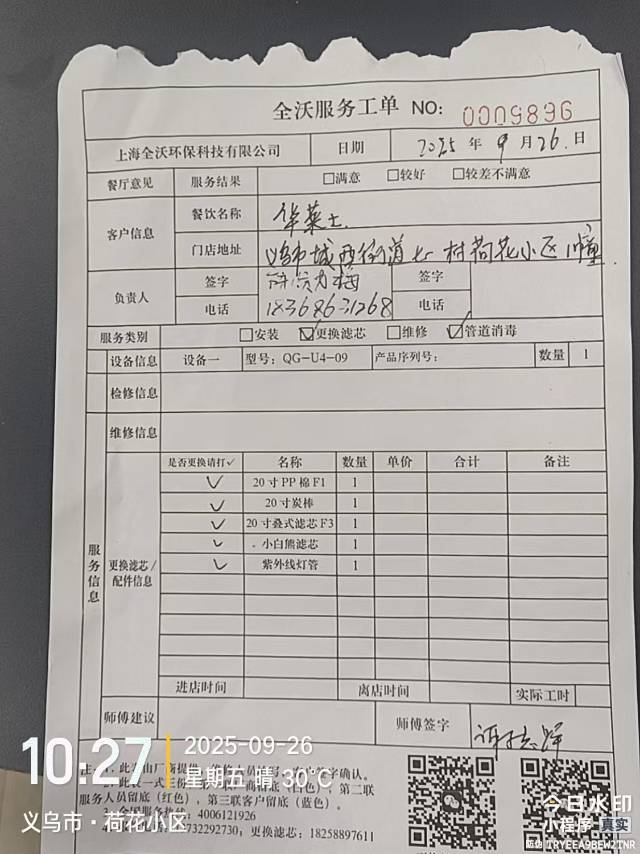 全沃服务工单 NO: 0009896
上海全沃环保科技有限公司 日期 2025 年 9 月 26 日
餐厅意见 服务结果 □满意 □较好 □较差不满意
客户信息 餐饮名称 华莱士
门店地址 义乌市城西街道七一村荷花小区11幢
负责人 签字 签字
电话 18368631268 电话
服务类别 □安装 ☑更换滤芯 □维修 ☑管道消毒
设备信息 设备一 型号: QG-U4-09 产品序列号: 数量 1
检修信息
维修信息
服务信息
更换滤芯/配件信息
是否更换请打✓ 名称 数量 单价 合计 备注
✓ 20寸PP棉F1 1
✓ 20寸炭棒 1
✓ 20寸叠式滤芯F3 1
✓ 小白熊滤芯 1
✓ 紫外线灯管 1
进店时间 离店时间 实际工时
师傅建议 师傅签字
10:27 2025-09-26
星期五 晴 30℃
义乌市·荷花小区
字确认。
第二联
服务人员留底（红色），第三联客户留底（蓝色）。
4006121926
732292730，更换滤芯：18258897611
今日水印
小程序 真实
防伪 TRYEEA9BEW2TNR